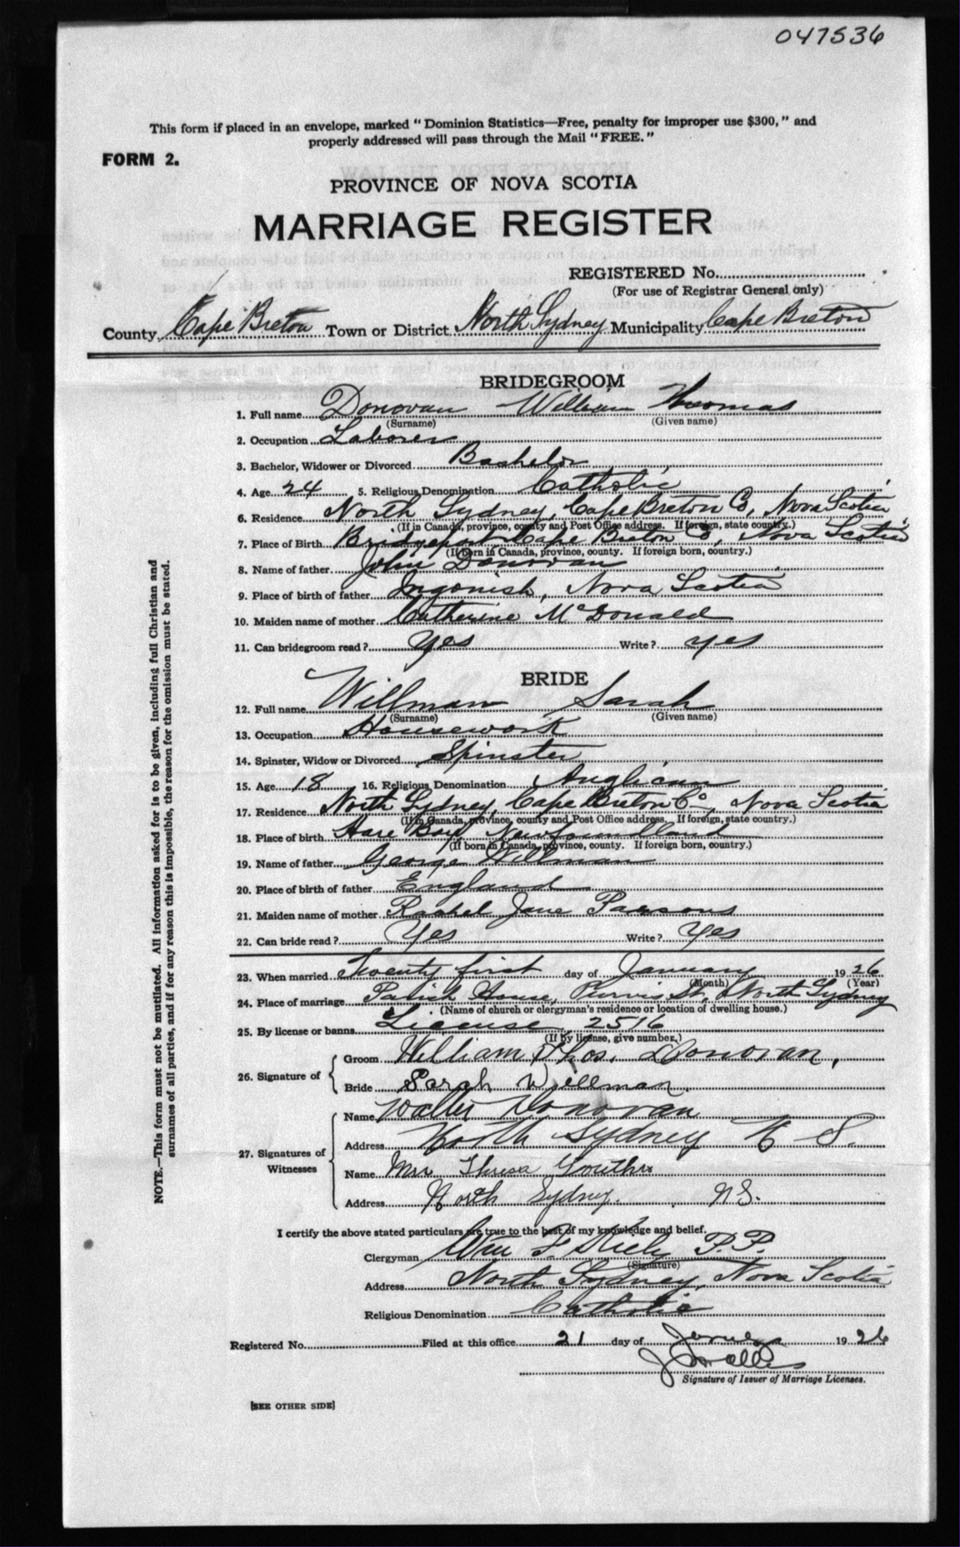 047536
This form if placed in an envelope, marked "Dominion Statistics—Free, penalty for improper use $300," and
properly addressed will pass through the Mail "FREE."
FORM 2.
PROVINCE OF NOVA SCOTIA
MARRIAGE REGISTER
REGISTERED No.
(For use of Registrar General only)
County Cape Breton Town or District North Sydney Municipality Cape Breton
BRIDEGROOM
1. Full name Donovan William Thomas
(Surname) (Given name)
2. Occupation Laborer
3. Bachelor, Widower or Divorced Bachelor
4. Age 24 5. Religious Denomination Catholic
6. Residence North Sydney, Cape Breton Co, Nova Scotia
(If in Canada, province, county and Post Office address. If foreign, state country.)
7. Place of Birth Bridgeport Cape Breton Co, Nova Scotia
(If born in Canada, province, county. If foreign born, country.)
8. Name of father John Donovan
9. Place of birth of father Ingonish, Nova Scotia
10. Maiden name of mother Catherine McDonald
11. Can bridegroom read? Yes Write? yes
BRIDE
12. Full name Willman Sarah
(Surname) (Given name)
13. Occupation Housework
14. Spinster, Widow or Divorced Spinster
15. Age 18 16. Religious Denomination Anglican
17. Residence North Sydney, Cape Breton Co, Nova Scotia
(If in Canada, province, county and Post Office address. If foreign, state country.)
18. Place of birth Hare Bay Newfoundland
(If born in Canada, province, county. If foreign born, country.)
19. Name of father George Willman
20. Place of birth of father England
21. Maiden name of mother Rachel Jane Parsons
22. Can bride read? Yes Write? Yes
23. When married Twenty first day of January 1926
(Month) (Year)
24. Place of marriage Parish House, Purvis St, North Sydney
(Name of church or clergyman's residence or location of dwelling house.)
25. By license or banns License 2516
(If by license, give number.)
26. Signature of
Groom William Thos. Donovan,
Bride Sarah Willman.
27. Signatures of Witnesses
Name Walter Donovan
Address North Sydney N S.
Name Mrs Theresa
Address North Sydney. N.S.
I certify the above stated particulars are true to the best of my knowledge and belief.
Clergyman Wm F Kiely P.P.
(Signature)
Address North Sydney, Nova Scotia
Religious Denomination Catholic
Registered No. Filed at this office 21 day of 1926
Signature of Issuer of Marriage Licenses.
[SEE OTHER SIDE]
NOTE.—This form must not be mutilated. All information asked for is to be given, including full Christian and
surnames of all parties, and if for any reason this is impossible, the reason for the omission must be stated.